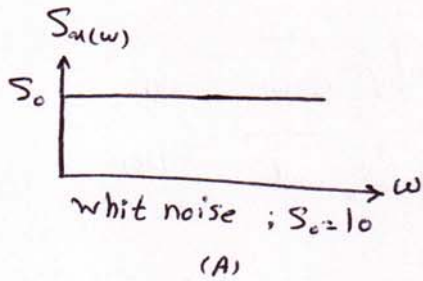 Sₐₐ(ω)
S₀
ω
whit noise ; S₀=10
(A)